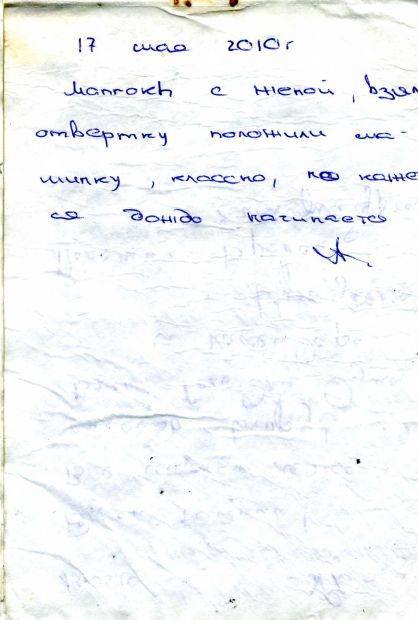 17 мая 2010г
с женой, взял
отвертку положили ма-
шинку, классно, но каже
ся дождь начинается